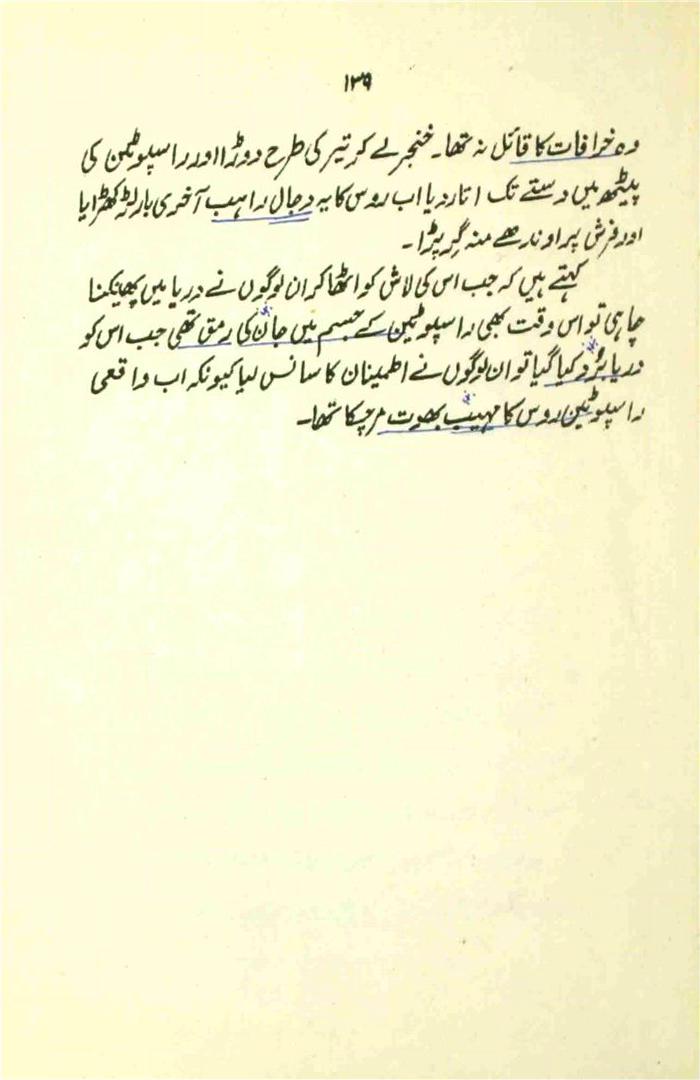 ۱۳۹
وہ خرافات کا قائل نہ تھا۔ خنجر لے کر تیر کی طرح دوڑا اور راسپوٹین کی
پیٹھ میں دستے تک اتار دیا اب روس کا یہ دجال راہب آخری بار لڑکھڑایا
اور فرش پر اوندھے منہ گر پڑا۔
کہتے ہیں کہ جب اس کی لاش کو اٹھا کر ان لوگوں نے دریا میں پھینکنا
چاہی تو اس وقت بھی راسپوٹین کے جسم میں جان کی رمق تھی جب اس کو
دریا بُرد کیا گیا تو ان لوگوں نے اطمینان کا سانس لیا کیونکہ اب واقعی
راسپوٹین روس کا مہیب بھوت مرچکا تھا۔